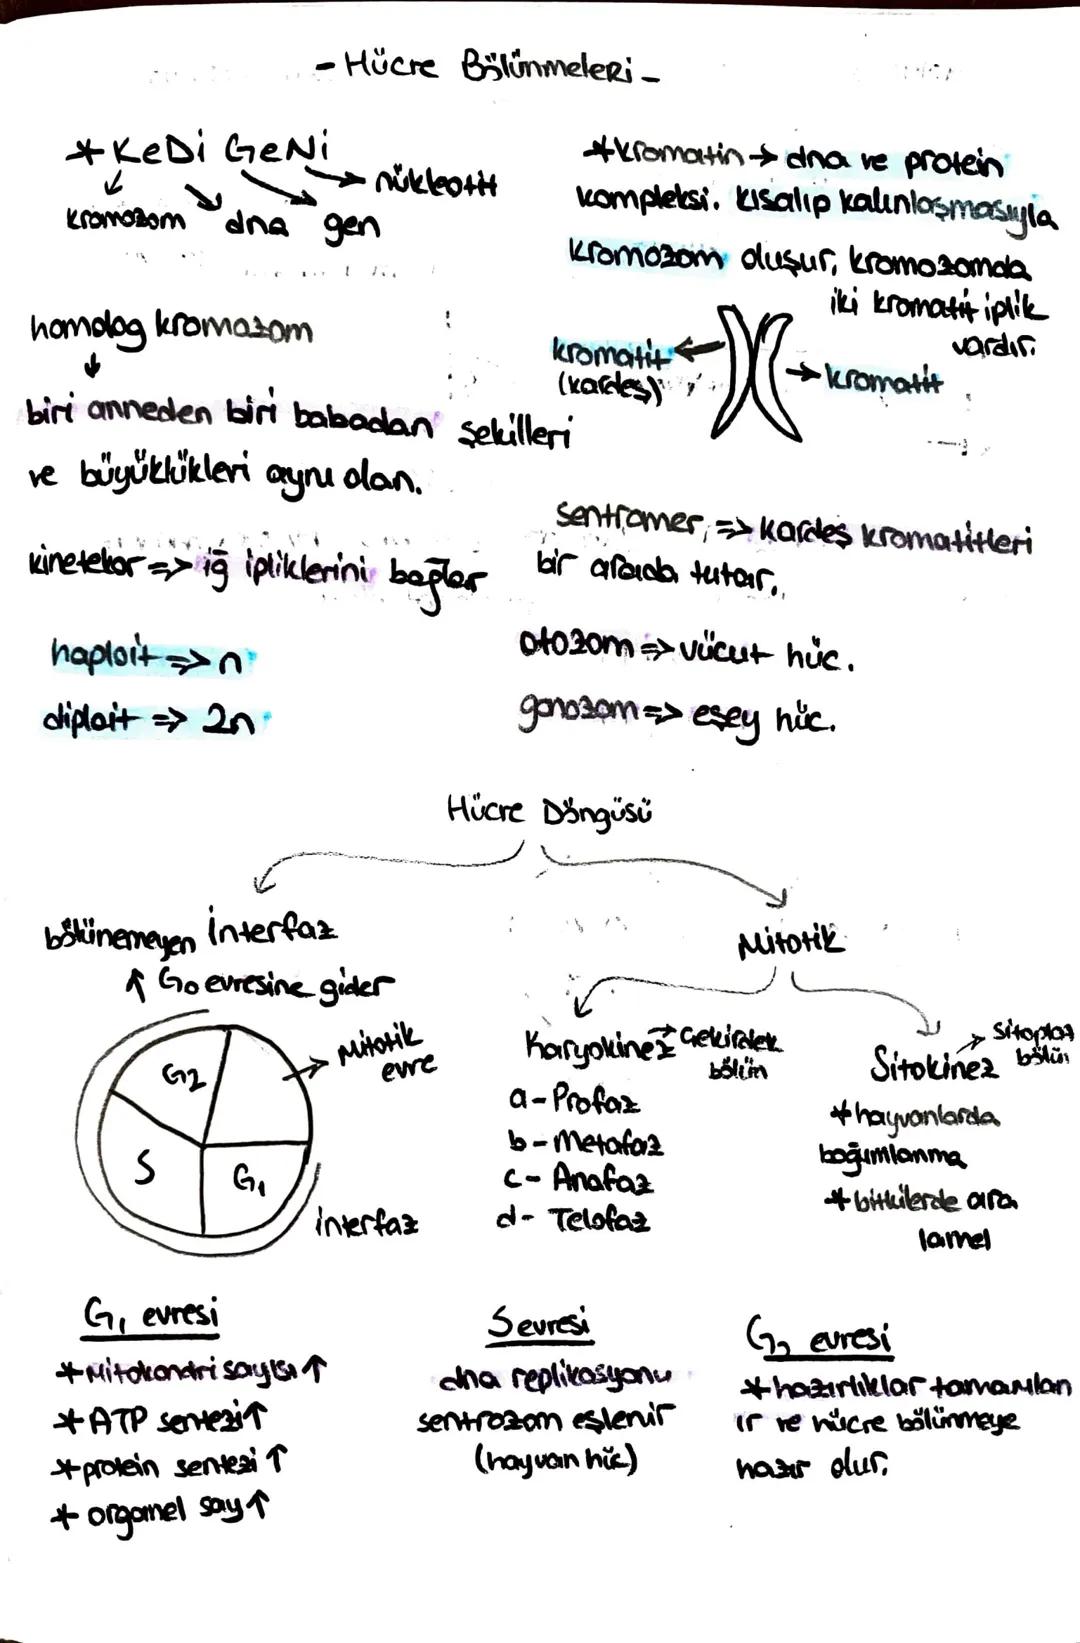 - Hücre BölünmeleRi -
* KeDi GeNi
nükleotit
kromozom dna gen
*kromatin → dna ve protein
kompleksi. kısalıp kalınlaşmasıyla
kromozom oluşur, kromozomda
iki kromatit iplik
vardır.
kromatit
(kardeş)
kromatit
homolog kromozom
biri anneden biri babadan şekilleri
ve büyüklükleri aynı olan.
sentromer => kardeş kromatitleri
bir arada tutar.
kinetekor => iğ ipliklerini bağlar
haploit => n
diploit => 2n
otozom => vücut hüc.
gonozom => eşey hüc.
Hücre Döngüsü
bölünemeyen İnterfaz
↑ G0 evresine gider
Mitotik
evre
G2
S
G1
interfaz
Mitotik
Karyokinez → Çekirdek
bölün
a - Profaz
b - Metafaz
c - Anafaz
d - Telofaz
Sitokinez → Sitoplaz
bölün
* hayvanlarda
boğumlanma
* bitkilerde ara
lamel
G1 evresi
* Mitokondri sayısı ↑
* ATP sentezi ↑
* protein sentezi ↑
* organel say ↑
S evresi
dna replikasyonu
sentrozom eşlenir
(hayvan hüc)
G2 evresi
* hazırlıklar tamamlan
ır ve hücre bölünmeye
hazır olur.